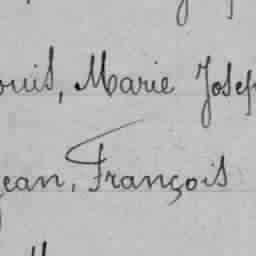 ouis, Marie Josep
Jean, François